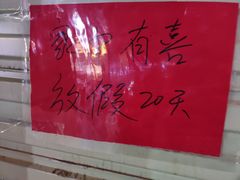 家中有喜
放假20天